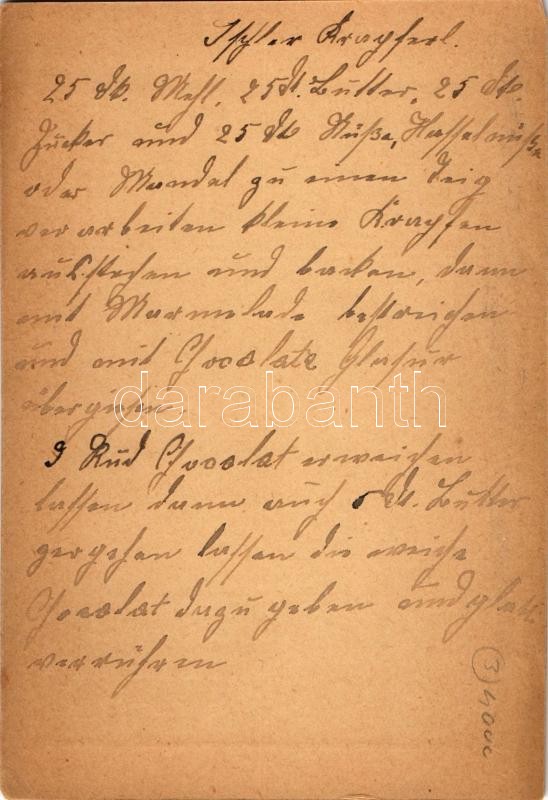 Ischler Krapferl.
25 dk. Mehl, 25 dk. Butter, 25 dk.
Zucker und 25 dk Nüße, Hasselnüße
oder Mandel zu einen Teig
verarbeiten kleine Krapfen
ausstechen und backen, dann
mit Marmelade bestreichen
und mit Chocolate Glasur
übergießen.
darabanth
9 Chocolat erweichen
lassen dann auch 5 dk. Butter
zergehen lassen die weiche
Chocolat dazu geben und glatt
verrühren
3